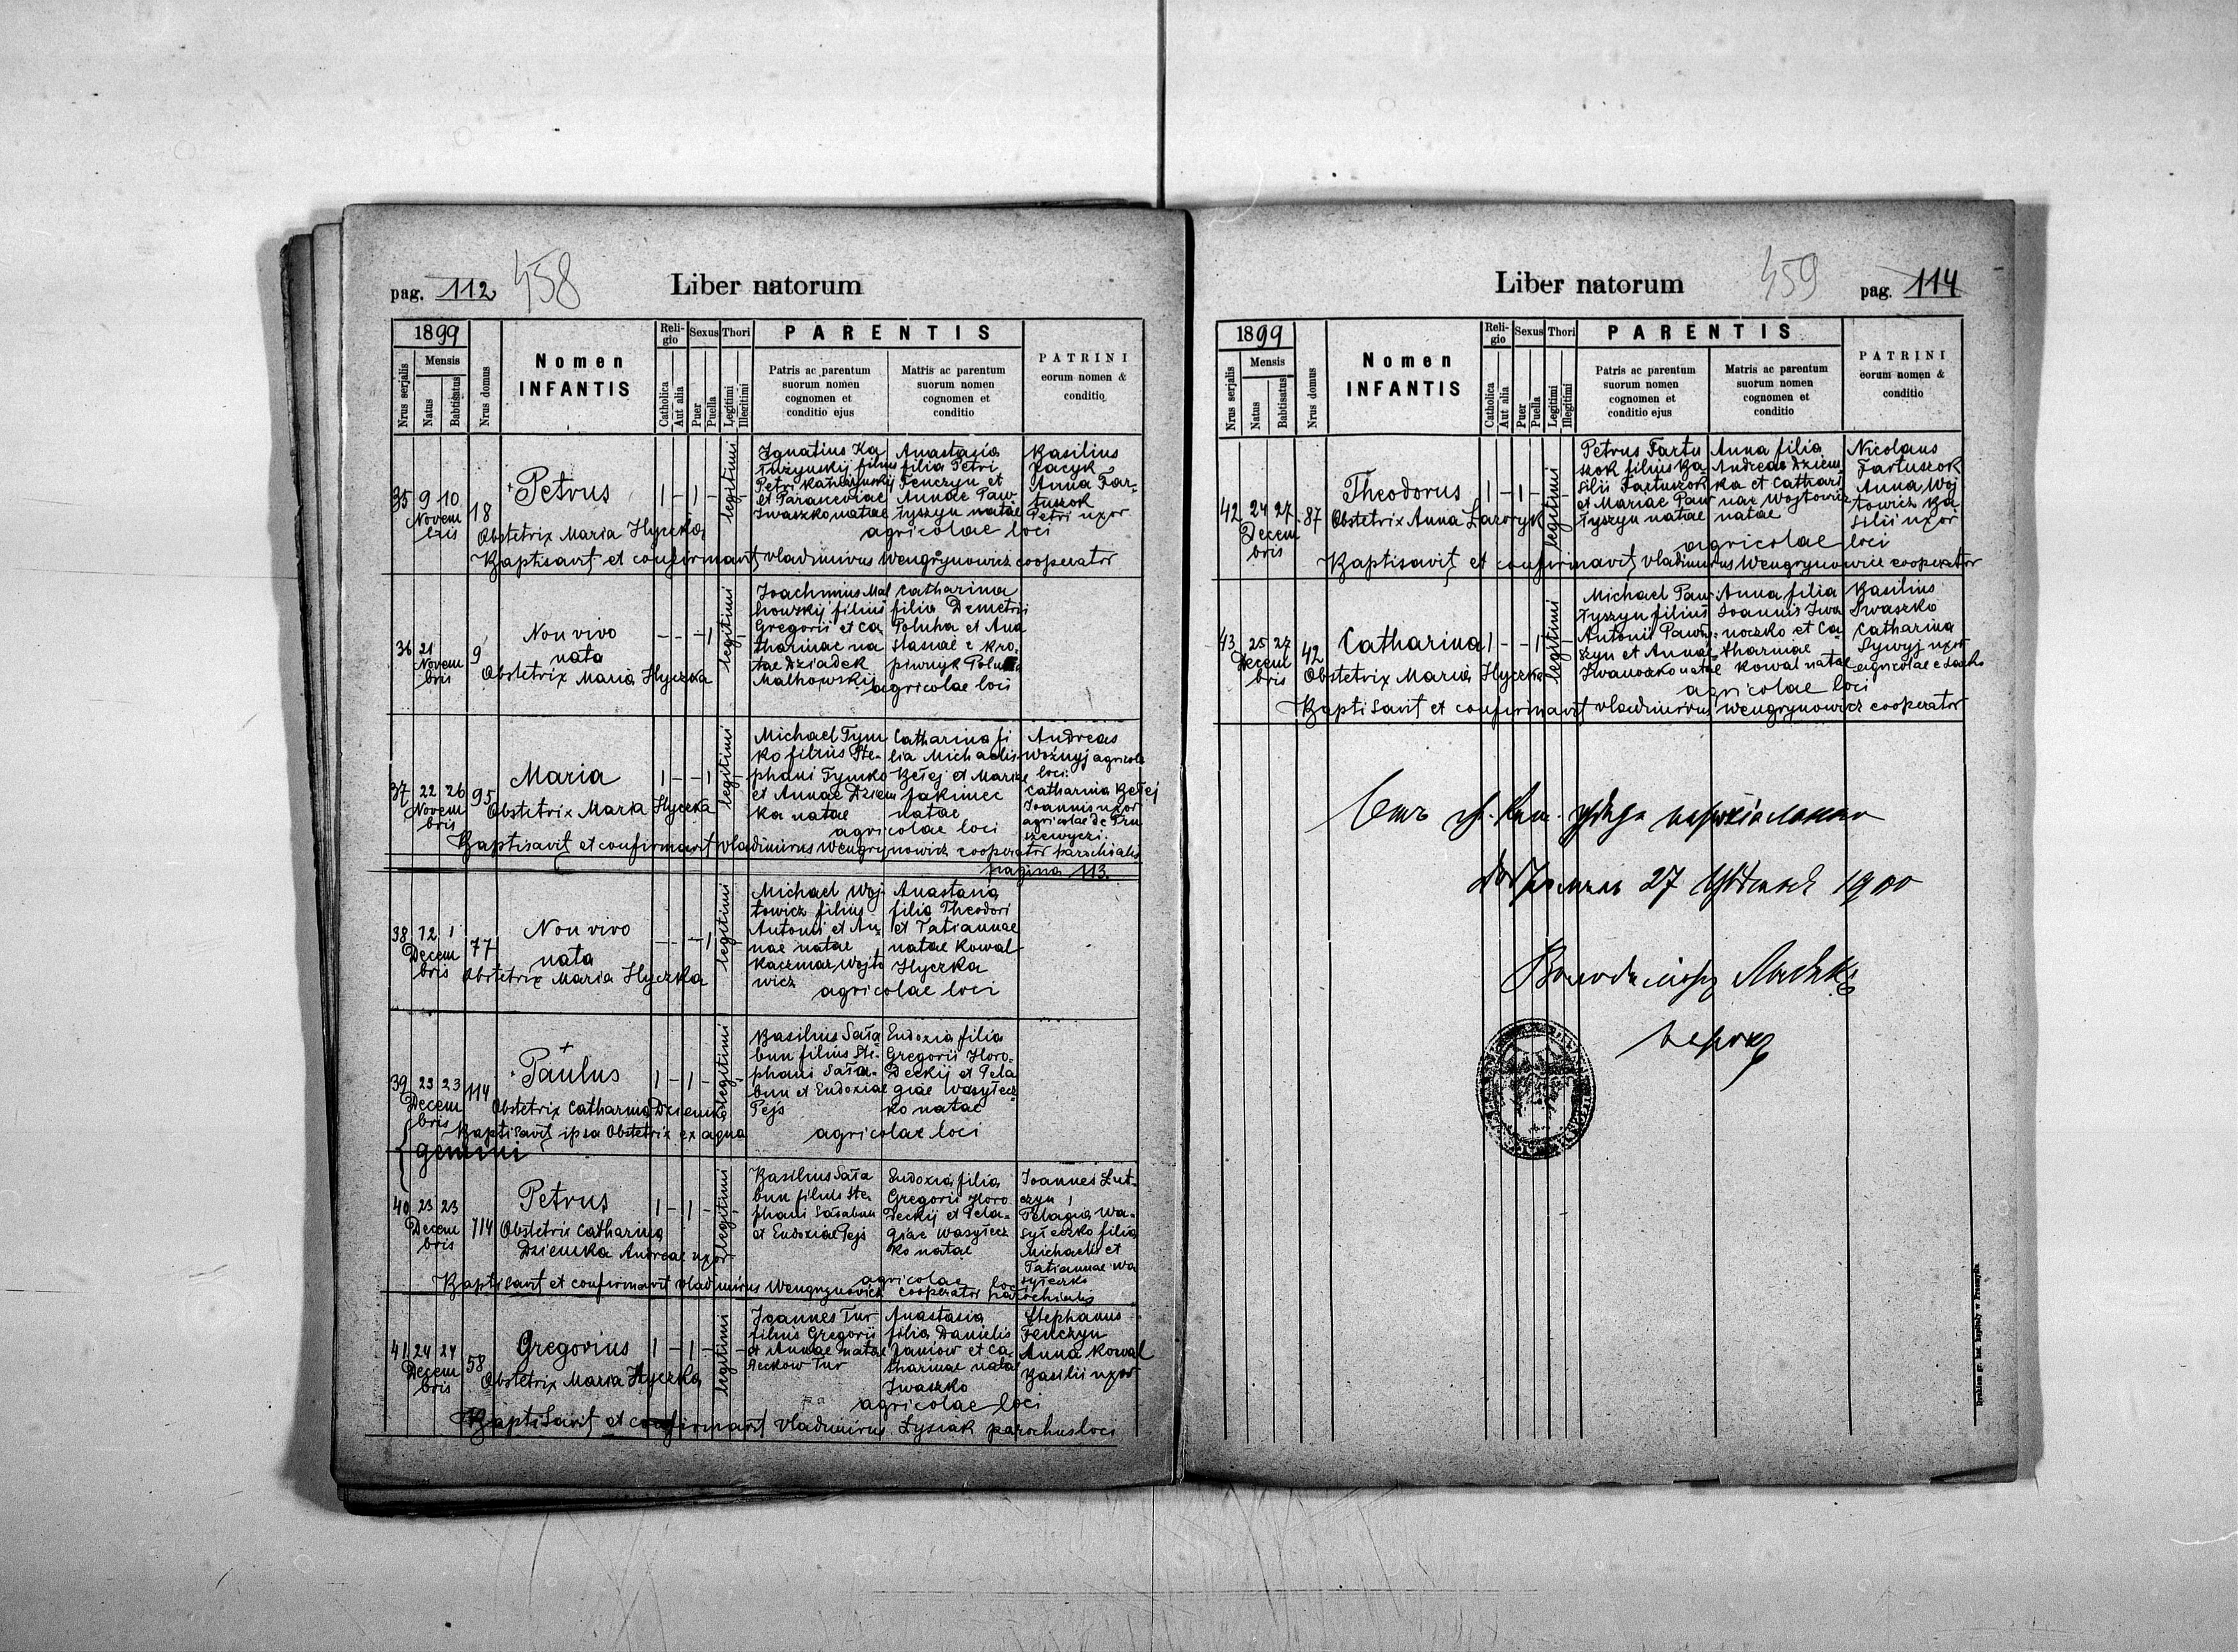 pag. 112 458
Liber natorum
1899
Nrus serjalis
Mensis
Natus
Babtisatus
Nrus domus
Nomen
INFANTIS
Religio
Catholica
Aut alia
Sexus
Puer
Puella
Thori
Legitimi
Illegitimi
PARENTIS
Patris ac parentum
suorum nomen
cognomen et
conditio ejus
Matris ac parentum
suorum nomen
cognomen et
conditio
PATRINI
eorum nomen &
conditio
35 9 10
Novem
bris
18
Petrus
1 - 1 -
legitimi
Obstetrix Maria Hyczka
Ignatius Ka
filius
Petri
et Paranceviae
Iwaszko natae
Anastasia
filia Petri
Fenczyn et
Annae Paw
tyszyn natae
agricolae loci
Basilius
Pacyk
Anna Far-
tuszok
Petri uxor
Baptisavit et confirmavit Vladimirus Wengrynowicz cooperator
36 21
Novem
bris
9
Non vivo
nata
- - - 1
legitimi
Obstetrix Maria Hyczka
Joachimus Mal
howskij filius
Gregorii et Ca
tharinae na
tae Dziadek
Malhowskij
Catharina
filia Demetri
Poluha et Ana
stasiae e Kro-
piwnyk
agricolae loci
37 22 26
Novem
bris
95
Maria
1 - - 1
legitimi
Obstetrix Maria Hyczka
Michael Tym
ko filius Ste-
phani Tymko
et Annae Dziem
ka natae
Catharina fi
lia Michaelis
Bełej et Mariae
Jakimec
natae
agricolae loci
Andreas
Woźnyj agricola
loci
Catharina Bełej
Joannis uxor
agricolae de Pru
Baptisavit et confirmavit Vladimirus Wengrynowicz cooperator parochialis
pagina 113.
38 12 1
Decem
bris
77
Non vivo
nata
- - - 1
legitimi
Obstetrix Maria Hyczka
Michael Woj-
towicz filius
Antonii et An
nae natae
Kaczmar Wojto
wicz
Anastasia
filia Theodori
et Tatiannae
natae Kowal
Hyczka
agricolae loci
39 23 23
Decem
bris
114
Paulus
1 - 1 -
legitimi
Obstetrix Catharina Dziemka
Basilius Sała
bun filius Ste-
phani Sała-
bun et Eudoxiae
Pejs
Eudoxia filia
Gregorii Horo-
deckij et Pela
giae Wasyłecz
ko natae
Baptisavit ipsa Obstetrix ex aqua
agricolae loci
gemini
40 23 23
Decem
bris
114
Petrus
1 - 1 -
legitimi
Obstetrix Catharina
Dziemka Andreae uxor
Basilius Sała
bun filius Ste-
phani Sałabun
et Eudoxiae Pejs
Eudoxia filia
Gregorii Horo
deckij et Pela-
giae Wasyłecz
ko natae
agricolae loci
Joannes Lut-
czyn
Pelagia Wa-
syłeczko filia
Michaelis et
Tatiannae Wa
syłeczko
Baptisavit et confirmavit Vladimirus Wengrynowicz cooperator parochialis
41 24 24
Decem
bris
58
Gregorius
1 - 1 -
legitimi
Obstetrix Maria Hyczka
Joannes Tur
filius Gregorii
et Annae natae
Anastasia
filia Danielis
Janiow et Ca-
tharinae natae
Iwaszko
agricolae loci
Stephanus
Fenczyn
Anna Kowal
Basilii uxor
Baptisavit et confirmavit Vladimirus Łysiak parochus loci
Liber natorum
459 pag. 114
1899
Nrus serjalis
Mensis
Natus
Babtisatus
Nrus domus
Nomen
INFANTIS
Religio
Catholica
Aut alia
Sexus
Puer
Puella
Thori
Legitimi
Illegitimi
PARENTIS
Patris ac parentum
suorum nomen
cognomen et
conditio ejus
Matris ac parentum
suorum nomen
cognomen et
conditio
PATRINI
eorum nomen &
conditio
42 24 27
Decem
bris
87
Theodorus
1 - 1 -
legitimi
Obstetrix Anna
Petrus Fartu
szok filius Ba-
silii Fartuszok
et Mariae Paw
tyszyn natae
Anna filia
Andreae Dziem
ka et Cathari
nae Wojtowicz
natae
agricolae loci
Nicolaus
Fartuszok
Anna Woj
towicz Ba
silii uxor
Baptisavit et confirmavit Vladimirus Wengrynowicz cooperator
43 25 27
Decem
bris
42
Catharina
1 - - 1
legitimi
Obstetrix Maria Hyczka
Michael Paw
tyszyn filius
Antonii Pawty
szyn et Annae
Iwanoczko natae
Anna filia
Joannis Iwa
noczko et Ca
tharinae
Kowal natae
agricolae loci
Basilius
Iwaszko
Catharina
Sywyj uxor
agricolae
Baptisavit et confirmavit Vladimirus Wengrynowicz cooperator
27 1900